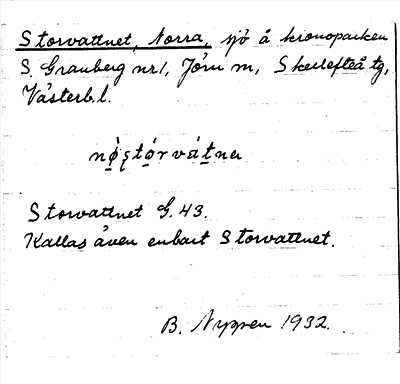 Storvattnet, Norra, sjö å kronoparken
S. Granberg nr 1, Jörn sn, Skellefteå tg,
Västerb. l.
nǫ̀ʂtǫ́rvátna
Storvattnet G. 43.
Kallas även enbart Storvattnet.
B. Nyppen 1932.